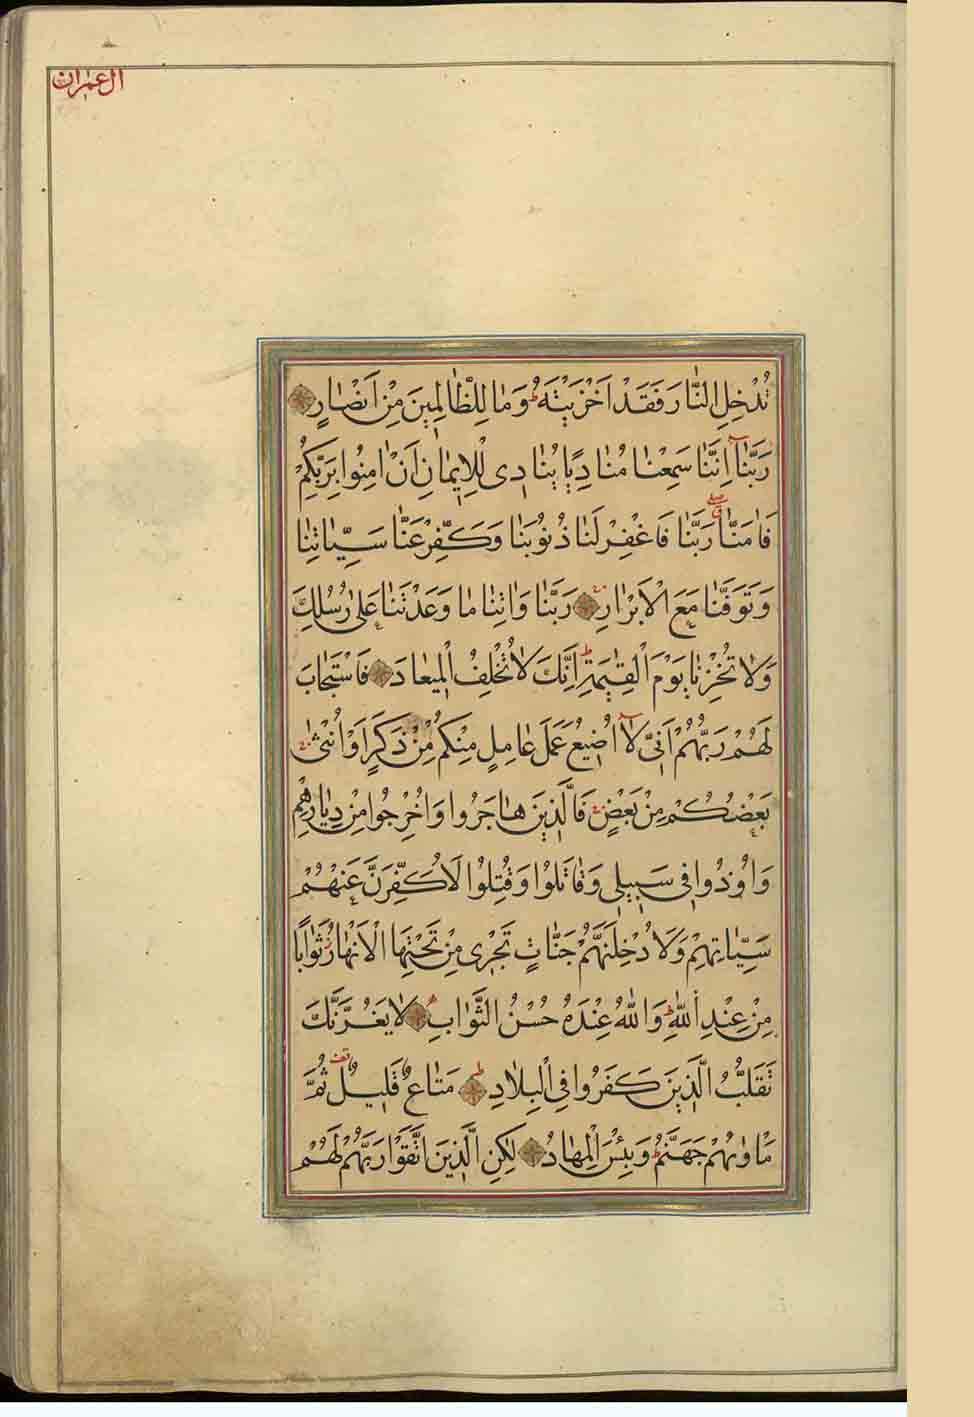 اٰل عمران
تُدْخِلِ النَّارَ فَقَدْ اَخْزَيْتَهُ ط وَمَا لِلظّٰالِمِينَ مِنْ اَنْصٰارٍ
رَبَّنٰا اِنَّنٰا سَمِعْنٰا مُنٰادِيًا يُنٰادِى لِلْاِيمٰانِ اَنْ اٰمِنُوا بِرَبِّكُمْ
فَاٰمَنّٰا رَبَّنٰا فَاغْفِرْ لَنٰا ذُنُوبَنٰا وَكَفِّرْ عَنّٰا سَيِّاٰتِنٰا
وَتَوَفَّنٰا مَعَ الْاَبْرٰارِ رَبَّنٰا وَاٰتِنٰا مٰا وَعَدْتَنٰا عَلٰى رُسُلِكَ
وَلٰا تُخْزِنٰا يَوْمَ الْقِيٰمَةِ ط اِنَّكَ لٰا تُخْلِفُ الْمِيعٰادَ فَاسْتَجٰابَ
لَهُمْ رَبُّهُمْ اَنِّى لٰا اُضِيعُ عَمَلَ عٰامِلٍ مِنْكُمْ مِنْ ذَكَرٍ اَوْ اُنْثٰى
بَعْضُكُمْ مِنْ بَعْضٍ فَالَّذِينَ هٰاجَرُوا وَاُخْرِجُوا مِنْ دِيٰارِهِمْ
وَاُوذُوا فِى سَبِيلِى وَقٰاتَلُوا وَقُتِلُوا لَاُكَفِّرَنَّ عَنْهُمْ
سَيِّاٰتِهِمْ وَلَاُدْخِلَنَّهُمْ جَنّٰاتٍ تَجْرِى مِنْ تَحْتِهَا الْاَنْهٰارُ ثَوٰابًا
مِنْ عِنْدِ اللّٰهِ ط وَاللّٰهُ عِنْدَهُ حُسْنُ الثَّوٰابِ لٰا يَغُرَّنَّكَ
تَقَلُّبُ الَّذِينَ كَفَرُوا فِى الْبِلٰادِ ط مَتٰاعٌ قَلِيلٌ قف ثُمَّ
مَأْوٰىهُمْ جَهَنَّمُ ط وَبِئْسَ الْمِهٰادُ لٰكِنِ الَّذِينَ اتَّقَوْا رَبَّهُمْ لَهُمْ